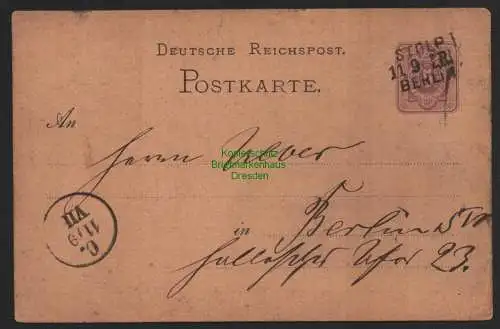 DEUTSCHE REICHSPOST.
POSTKARTE.
STOLP
11 9
BERLIN
An
Herrn Weber
Kopierschutz
Briefmarkenhaus
Dresden
in Berlin SW
Hallesches Ufer 23.
C.
11/9
VII